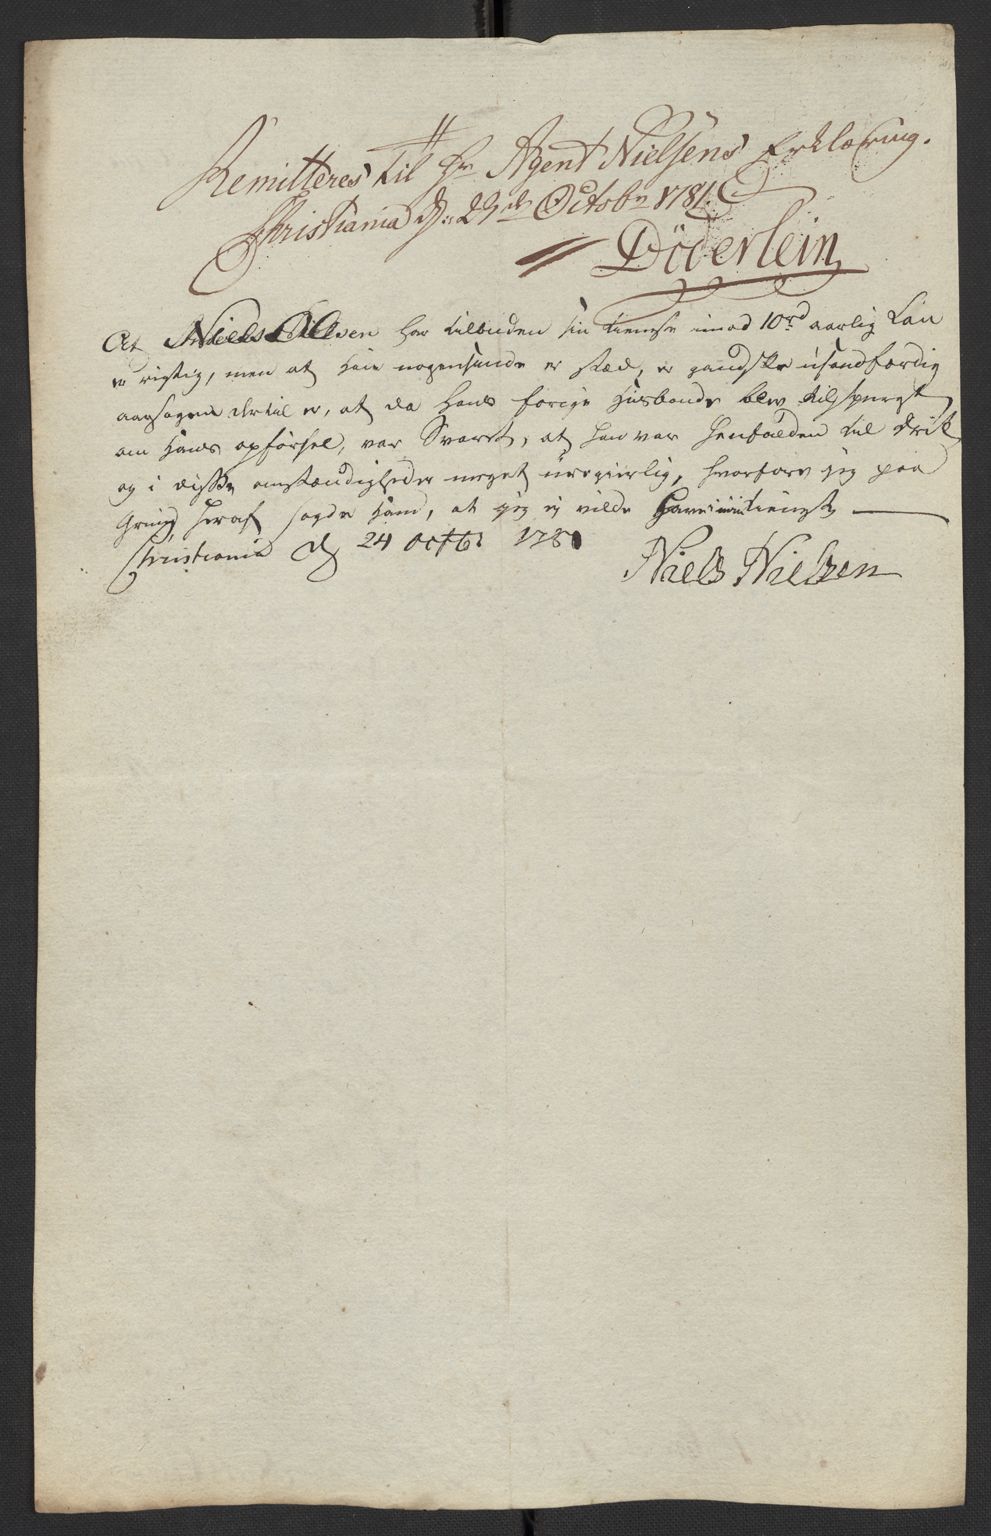 Remitteres til Hr Agent Nielsens Erklæring.
Christiania d: 23de Octobr 1781.
Döderlein
At Niels Olsen har tilbuden sin tieneste imod 10rd aarlig Løn
er rigtig, men at han nogensinde er stæd, er gandske usandfærdig
aarsagen dertil er, at da hans forige Husbonde blev tilspurgt
om hans opförsel, var Svaret, at han var henfalden til Drik
og i disse omstændigheder meget uregierlig, hvorfore jeg paa
Grund heraf sagde ham, at jeg ej vilde have i min tieneste
Christiania d 24 octbr 1781
Niels Nielsen